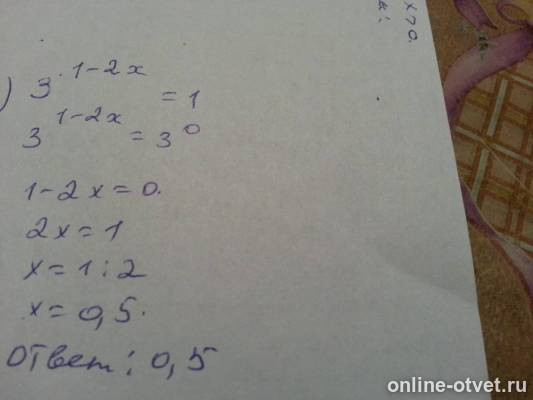 ) 3^1-2x = 1
3^1-2x = 3^0
1-2x=0.
2x=1
x=1:2
x=0,5.
Ответ: 0,5
x>0.
online-otvet.ru